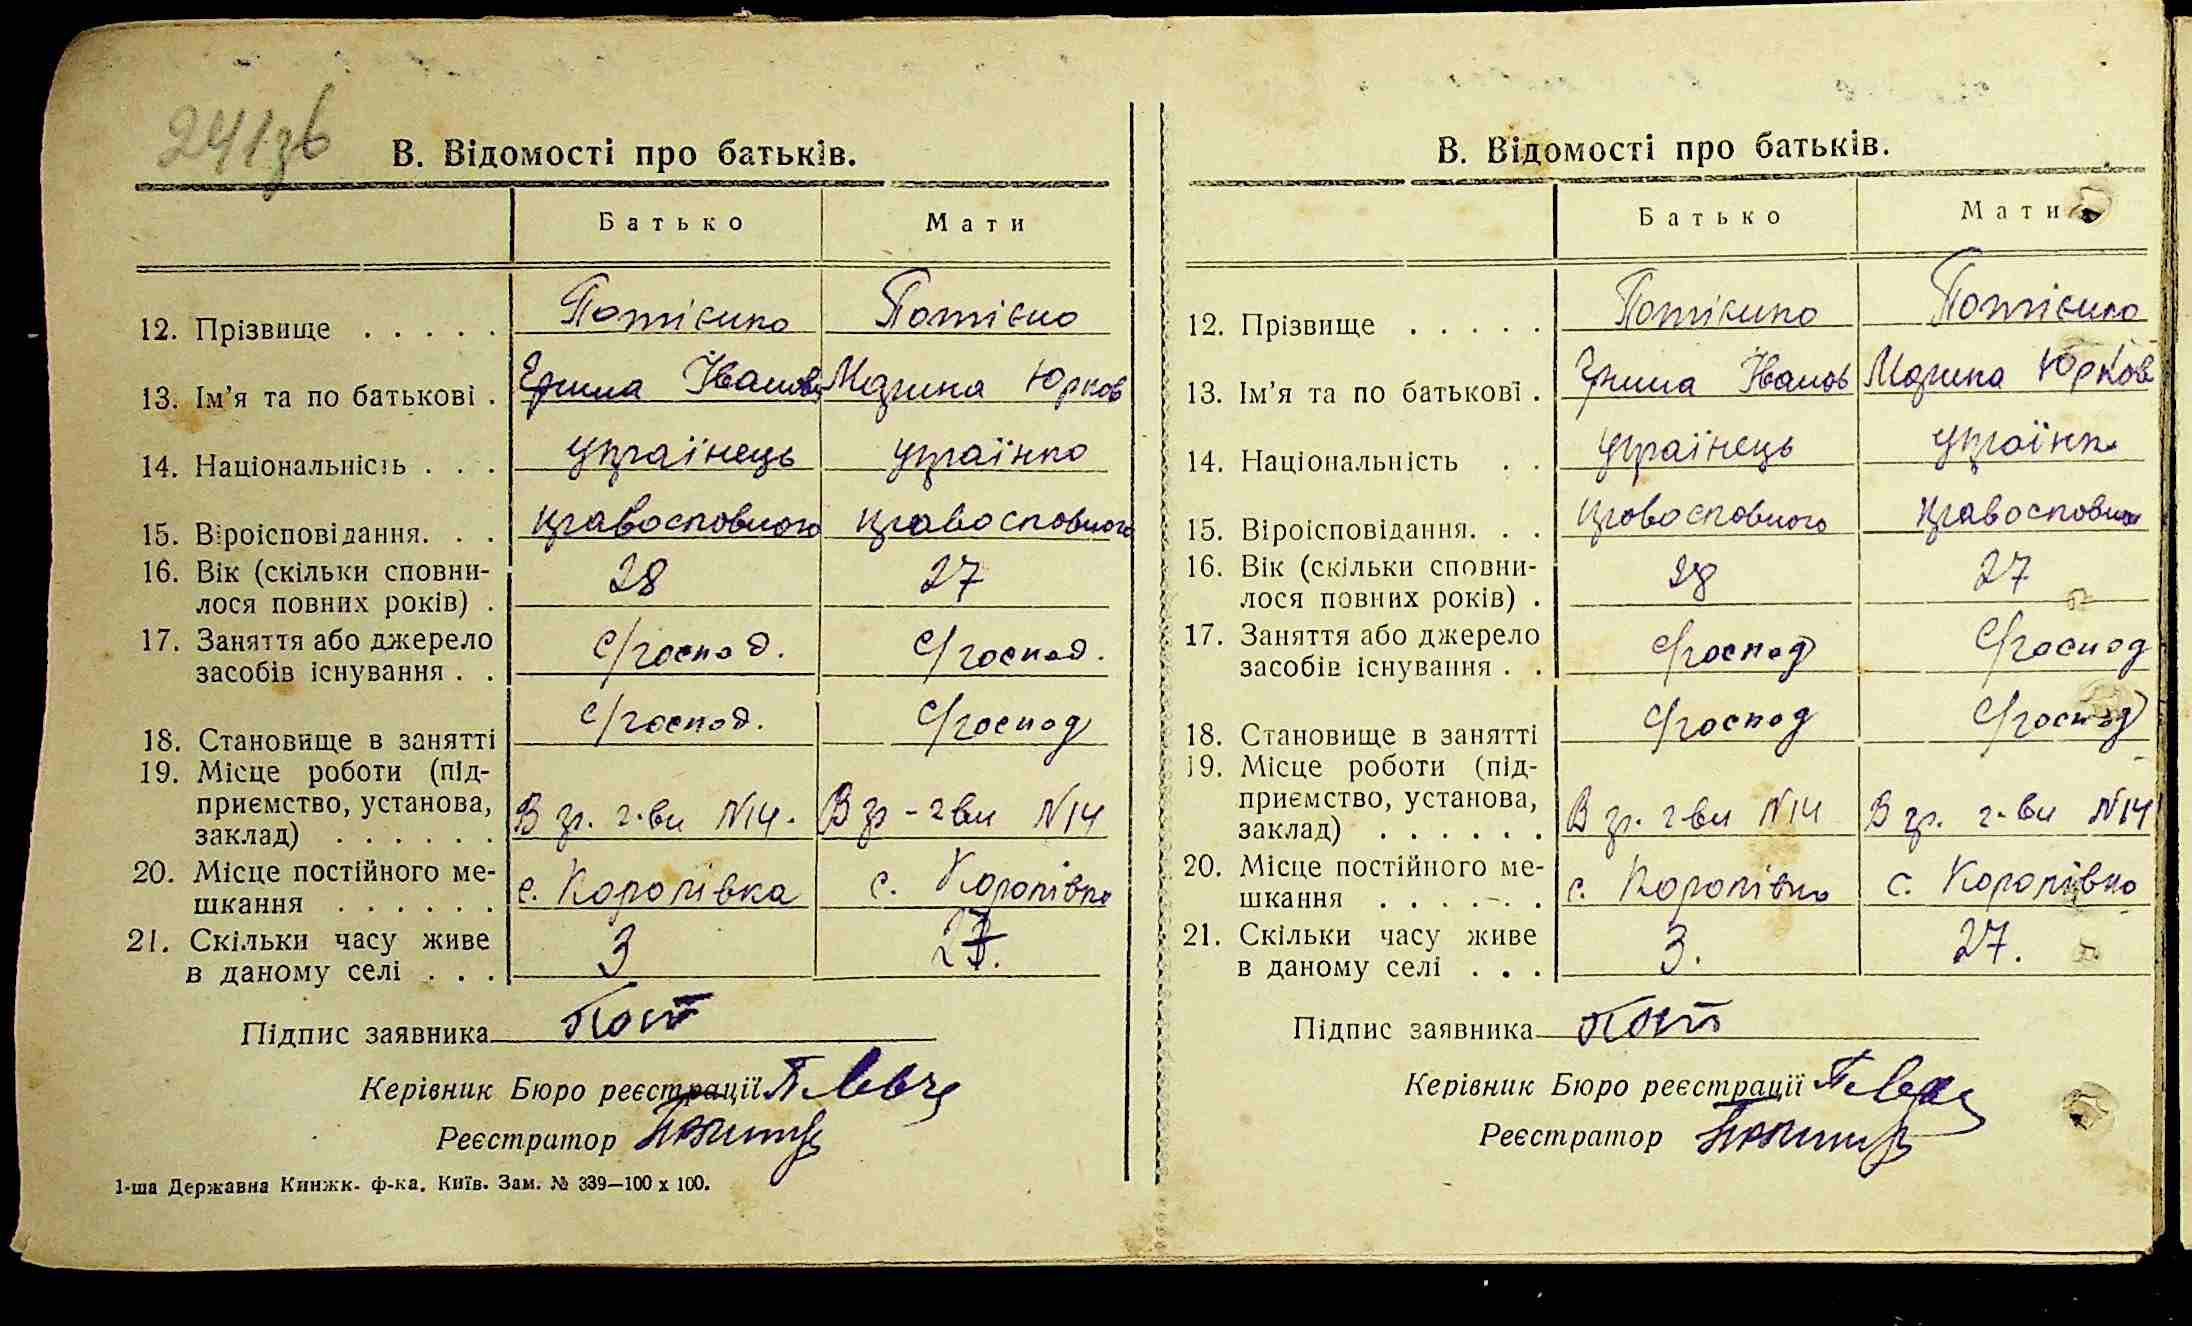 241зв
В. Відомості про батьків.
Батько Мати
12. Прізвище . . . . . Потієнко Потієно
13. Ім'я та по батькові . Іванов Марина Юрков
14. Національність . . . українець українко
15. Віроісповідання. . . православного православного
16. Вік (скільки сповни-
лося повних років) . 28 27
17. Заняття або джерело
засобів існування . . с/господ. с/господ.
18. Становище в занятті с/господ. с/господ
19. Місце роботи (під-
приємство, установа,
заклад) . . . . . . В гр. г-ви N14. В гр-гви N14
20. Місце постійного ме-
шкання . . . . . . с. Королівка с. Королівка
21. Скільки часу живе
в даному селі . . . 3 27.
Підпис заявника Пот
Керівник Бюро реєстрації
Реєстратор
1-ша Державна Кинжк. ф-ка. Київ. Зам. № 339—100 х 100.
В. Відомості про батьків.
Батько Мати
12. Прізвище . . . . . Потієнко Потієнко
13. Ім'я та по батькові . Іванов Марина Юрков
14. Національність . . українець українк
15. Віроісповідання. . . православного православного
16. Вік (скільки сповни-
лося повних років) . 28 27
17. Заняття або джерело
засобів існування . . с/господ с/господ
18. Становище в занятті с/господ с/господ
19. Місце роботи (під-
приємство, установа,
заклад) . . . . . . В гр. гви N14 В гр. г-ви N14
20. Місце постійного ме-
шкання . . . . . . с. Королівко с. Королівко
21. Скільки часу живе
в даному селі . . . 3. 27.
Підпис заявника Пот
Керівник Бюро реєстрації
Реєстратор